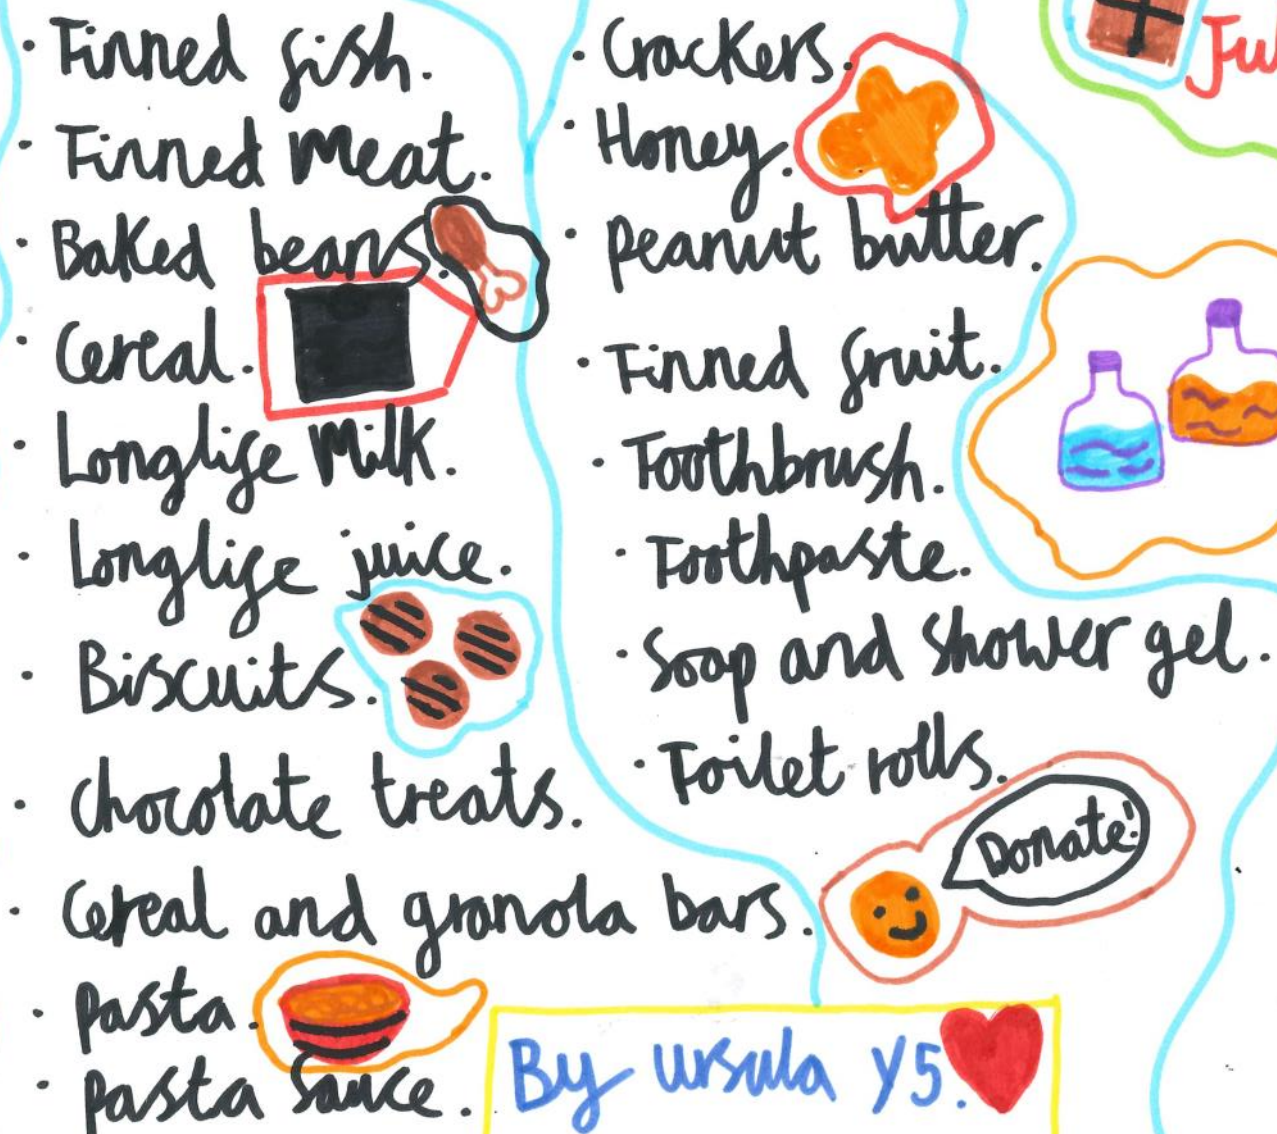 · Tinned fish.
· Tinned meat.
· Baked beans.
· Cereal.
· Longlife Milk.
· Longlife juice.
· Biscuits.
· chocolate treats.
· Cereal and granola bars.
· pasta.
· pasta sauce.
· Crackers.
· Honey.
· peanut butter.
· Tinned fruit.
· Toothbrush.
· Toothpaste.
· Soap and shower gel.
· Toilet rolls.
Donate!
By ursula y5.